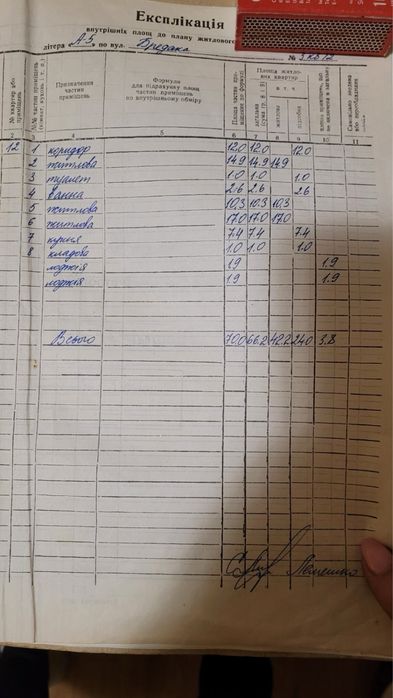 Експлікація
внутрішніх площ до плану житлового
літера "А-5" по вул. Бредака
№ квартир або приміщень
№№ частин приміщень (кімнат, кухонь і т. д.)
Призначення частин приміщень
Формула для підрахунку площ частин приміщень по внутрішньому обміру
Площа частин приміщення по формулі
Площа житлових квартир
загальна (сума гр. 8 і 9)
в т. ч.
житлова
підсобна
2 3 4 5 6 7 8 9 10 11
12 1 коридор 12.0 12.0 12.0
2 житлова 14.9 14.9 14.9
3 туалет 1.0 1.0 1.0
4 ванна 2.6 2.6 2.6
5 житлова 10.3 10.3 10.3
6 житлова 17.0 17.0 17.0
7 кухня 7.4 7.4 7.4
8 кладова 1.0 1.0 1.0
лоджія 1.9 1.9
лоджія 1.9 1.9
Всього 70.0 66.2 42.2 24.0 3.8